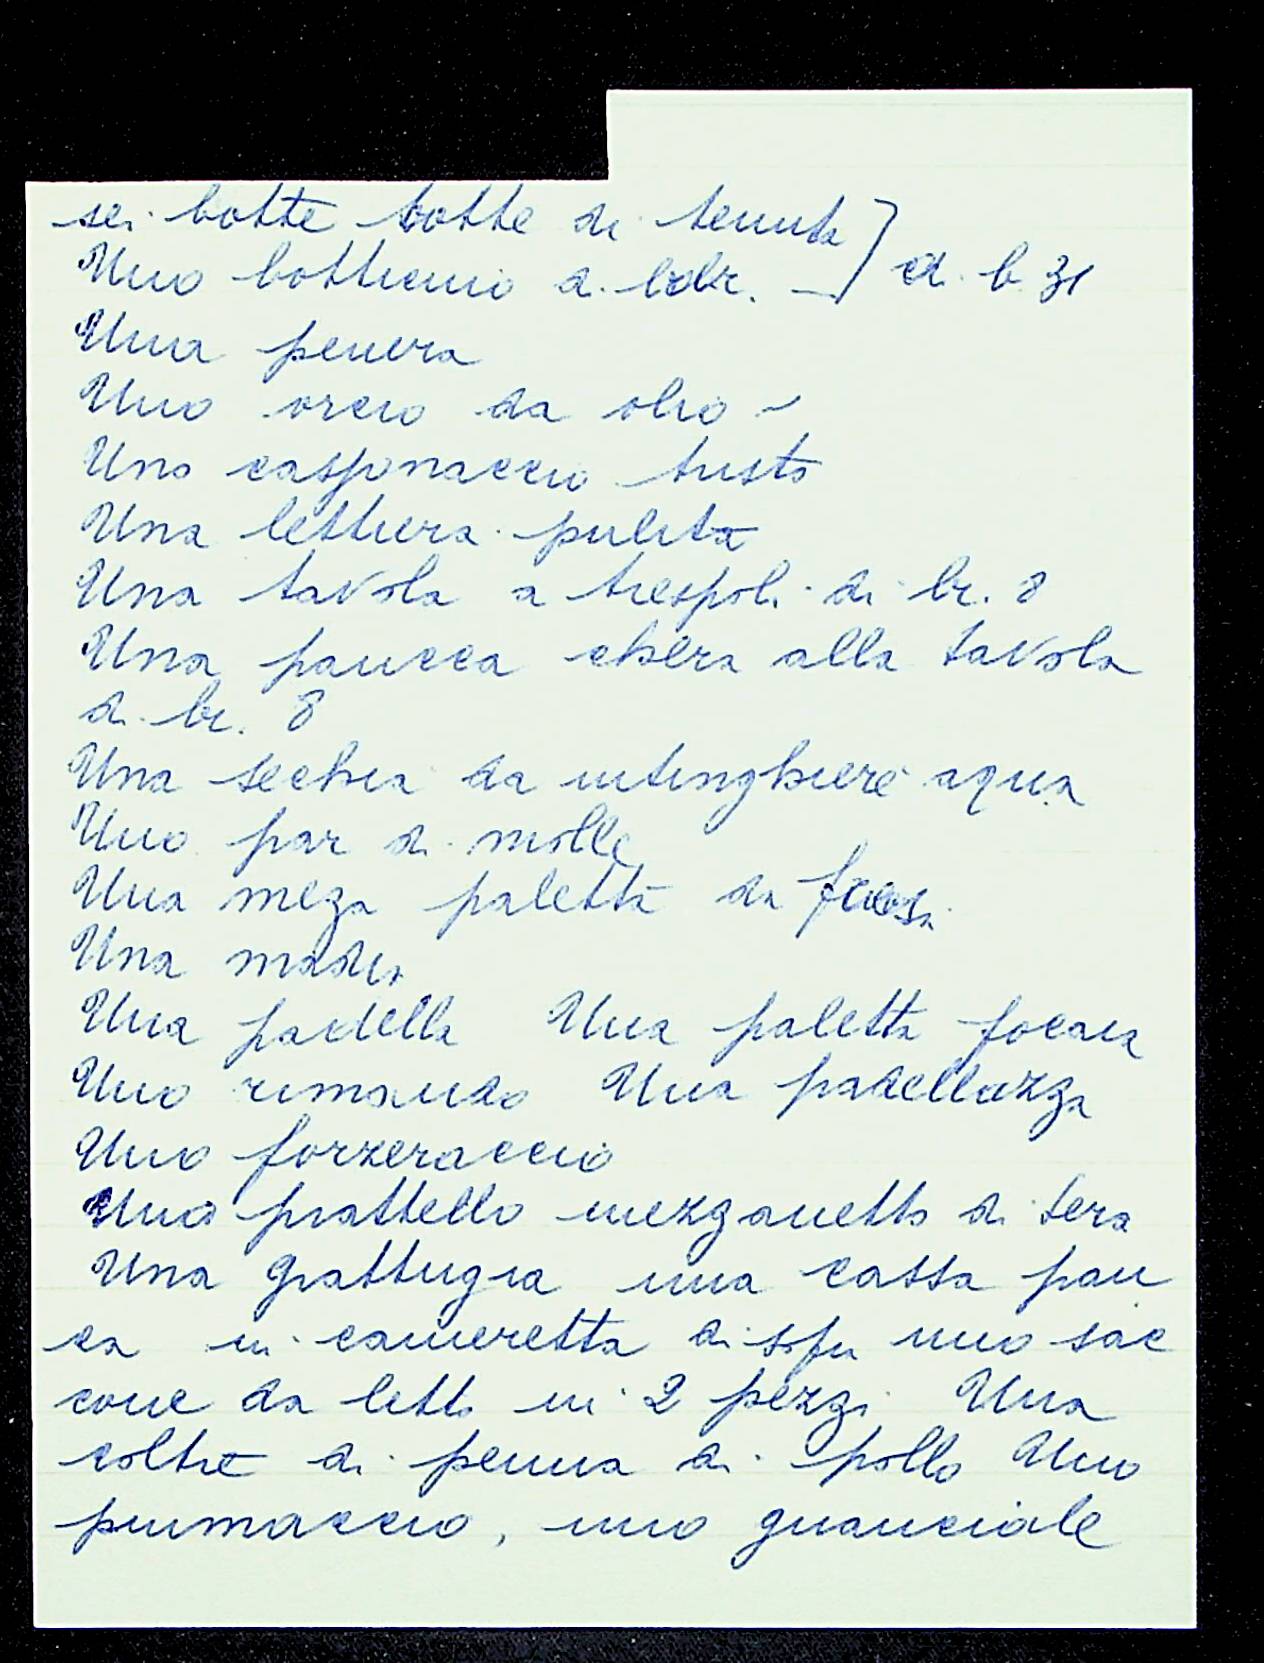 sei botte botte di tenuta
Uno botticino a. di b. 31
Una pevera
Uno orcio da olio
Uno cassonaccio tristo
Una lettiera pulita
Una tavola a trespoli di br. 8
Una pancca chera alla tavola
di br. 8
Una sechia da intinghiere aqua
Uno par di molle
Una meza paletta da
Una madia
Una padella Una paletta focaia
Uno Una padellazza
Uno forzeraccio
Uno piattello mezzanetto di tera
Una grattugia una cassa pan
ca in cameretta di sopra uno sac
cone da letto in 2 pezzi Una
coltre di penna di pollo Uno
piumaccio, uno guanciale